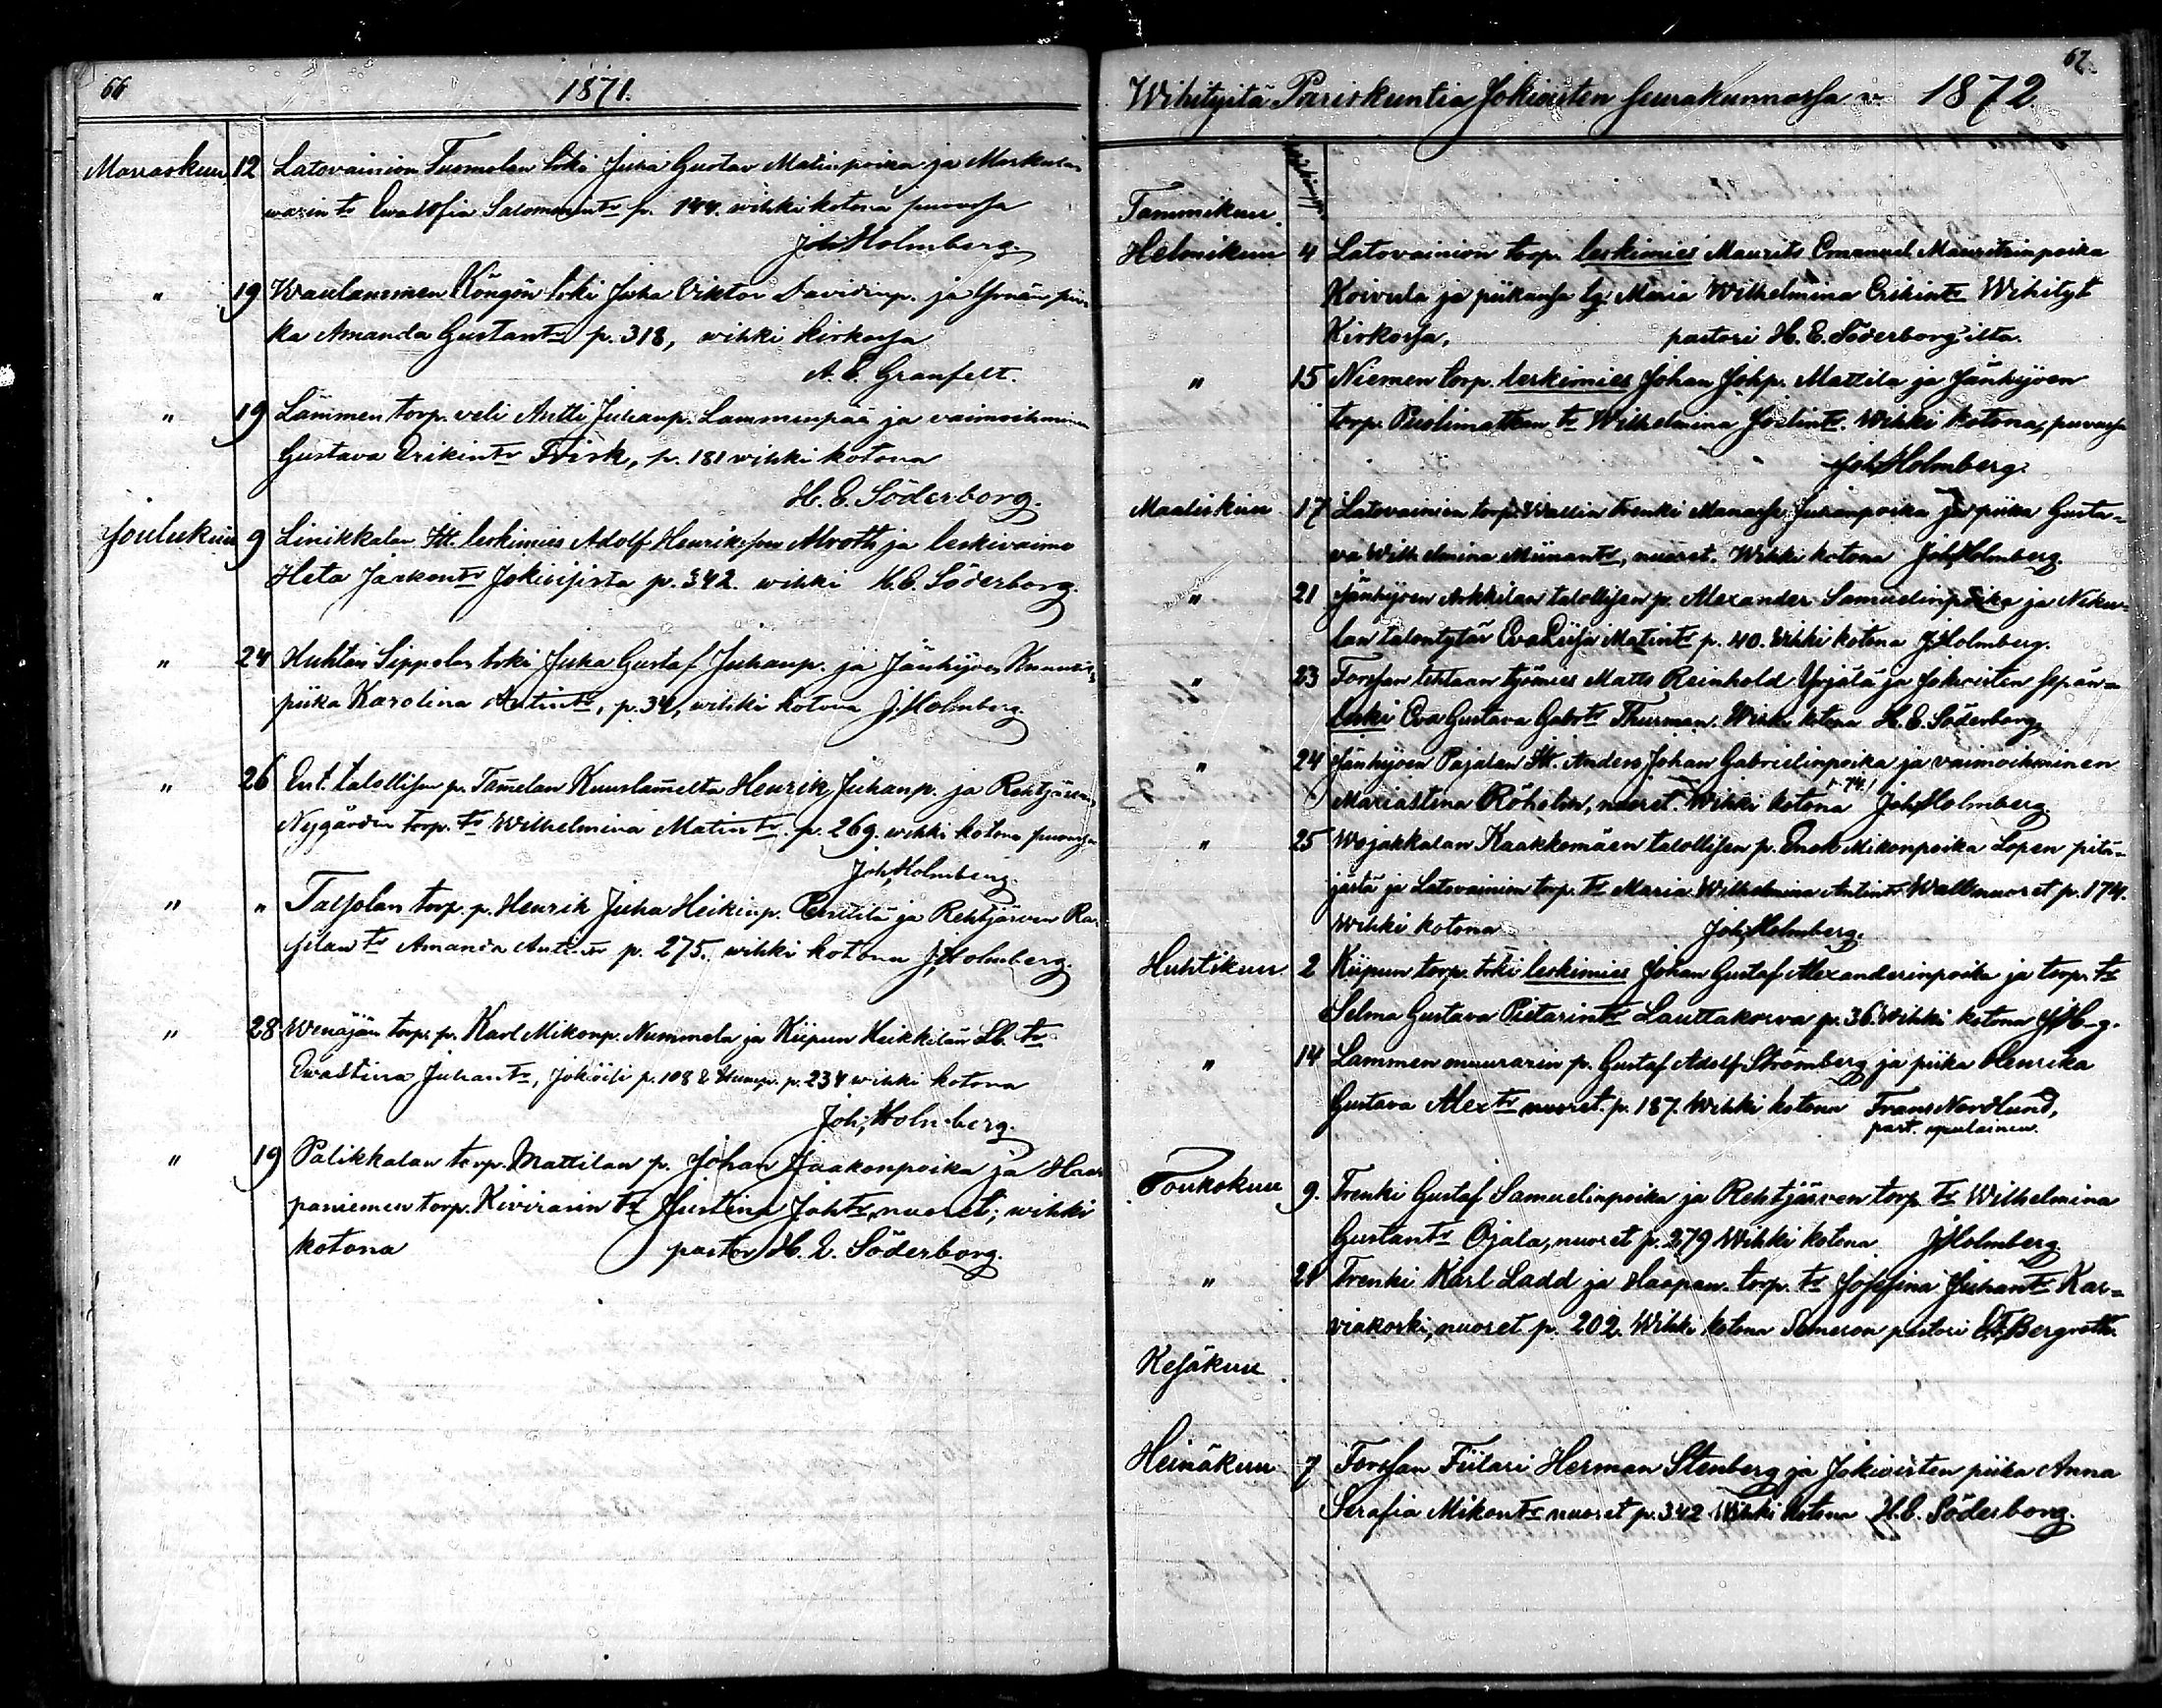 66
1871.
Marraskun 12 Latovainion Tuomolan trki Juha Gustav Matinpoika ja
warin tr Evastofia Salomontr p. 144. wihki kotona
Joh. Holmberg.
" 19 Waulammen Köngön trki Juha Viktor Davidinp. ja pii-
ka Amanda Gustantr p. 318, wihki kirkossa
A. E. Granfelt.
" 19 Lammen torp. veli Antti Juhanp. Lammenpää ja vaimoihminen
Gustava Erikintr Frisk, p. 181 wihki kotona
H. E. Söderborg.
Joulukun 9 Linikkalan Itt. leskimies Adolf Henriksson Alroth ja leskivaimo
Heta Jaakontr Jokioisista p. 342. wihki H. E. Söderborg.
" 24 Huhtaa Sippolan trki Juha Gustaf Juhanp. ja Jänhijoen
piika Karolina Antintr, p. 34, wihki kotona J. Holmberg.
" 26 Ent. talollisen p. Tam̄elan Kuuslam̄elta Henrik Juhanp. ja Rehtijärven
Nygårdin torp. tr Wilhelmina Matintr. p. 269. wihki kotona
Joh. Holmberg.
" " torp. p. Henrik Juha Heikinp. Penttilä ja Rehtijärven Ra-
tr Amanda Antintr p. 275. wihki kotona J. Holmberg.
" 28 Wenäjän torp. p. Karl Mikonp. Nummela ja Kiipun Heikkilän Lb. tr
Evastina Juhantr, p. 108 & p. 234 wihki kotona
Joh. Holmberg.
" 19 Palikkalan torp. Mattilan p. Johan Jaakonpoika ja Haa-
paniemen torp. Kivivarin tr Justina Johtr, nuoret; wihki
kotona pastor H. E. Söderborg.
67.
Wihityitä Pariskuntia Jokioisten seurakunnassa v. 1872
Tammikun
Helmikun 4 Latovainion torp. leskimies Maurits Emanuel Mauritsinpoika
Koivula ja piikansa Maria Wilhelmina Erikintr Wihityt
Kirkossa, pastori H. E. Söderborg'ilta.
" 15 Niemen torp. leskimies Johan Johp. Mattila ja Jänhijoen
torp. Puolimatkan tr Wilhelmina Wihki kotona,
Joh. Holmberg.
Maaliskun 17 Latovainion torp. Wallin trenki Manasse Juhanpoika ja piika Gusta-
va Wilhelmina nuoret. Wihki kotona Joh. Holmberg.
" 21 Jänhijoen Arkkilan talollisen p. Alexander Samuelinpoika ja
lan talontytär Eva Liisa Matintr p. 40. Wihki kotona J. Holmberg.
" 23 Forssan tehtaan työmies Matts Reinhold Yrjälä ja Jokioisten sepän-
leski Eva Gustava Gabrtr Thurman. Wihki kotona H. E. Söderborg,
" 24 Jänhijoen Pajalan Itt. Anders Johan Gabrielinpoika ja vaimoihminen
Mariastina Röhelin, nuoret. p. 74. Wihki kotona Joh. Holmberg
" 25 Wojakkalan Kaakkomäen talollisen p. Enok Mikonpoika Lopen pitä-
jästä ja Latovainion torp. tr Maria Wilhelmina Antintr Wall nuoret p. 174.
Wihki kotona Joh. Holmberg.
Huhtikun 2 Kiipun torp. trki leskimies Johan Gustaf Alexanderinpoika ja torp. tr
Selma Gustava Pietarintr Lauttakorva p. 36. Wihki kotona J. H-g.
" 14 Lammen muurarin p. Gustaf Adolf Strömberg ja piika Henrika
Gustava Alextr nuoret. p. 187. Wihki kotona Frans Nordlund,
past. apulainen.
Toukokun 9. Trenki Gustaf Samuelinpoika ja Rehtijärven torp. tr Wilhelmina
Gustantr Ojala, nuoret p. 279 Wihki kotona J. Holmberg
" 24 Trenki Karl Ladd ja Haapan. torp. tr Josefina Juhantr Kar-
viakoski, nuoret p. 202. Wihki kotona Someron pastori Bergroth.
Kesäkun
Heinäkun 7 Forssan Fiilari Herman Stenberg ja Jokioisten piika Anna
Serafia Mikontr nuoret p. 342 Wihki kotona H. E. Söderborg.